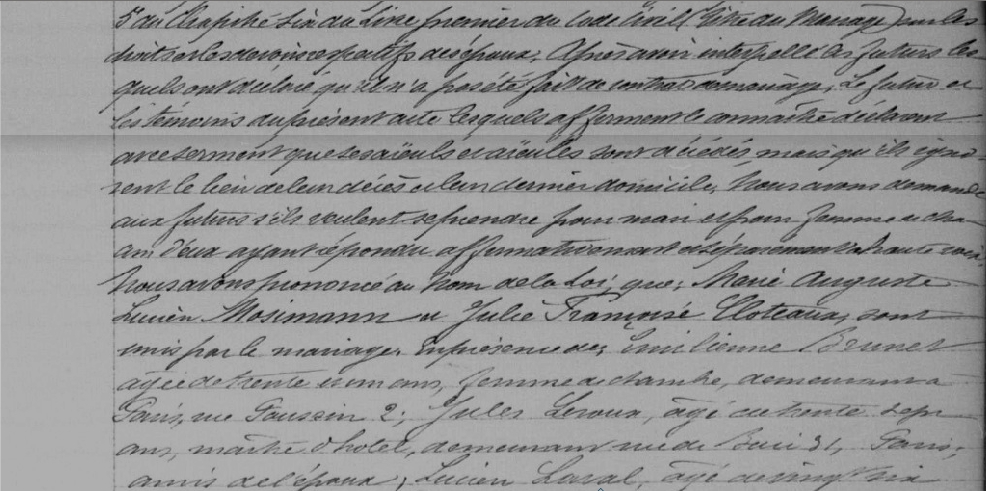 5 du Chapitre six du Livre premier du Code Civil (Titre du Mariage) sur les
droits et les devoirs respectifs des époux. Après avoir interpellé les futurs les
quels ont déclaré qu'il n'a pas été fait de contrat de mariage, Le futur et
les témoins du présent acte lesquels affirment le connaître déclarant
avec serment que ses aïeuls et aïeules sont décédés, mais qu'ils igno-
rent le lieu de leur décès et leur dernier domicile, Nous avons demandé
aux futurs s'ils veulent se prendre pour mari et pour femme et cha-
cun d'eux ayant répondu affirmativement et séparément à haute voix,
Nous avons prononcé au Nom de la Loi, que: Marie Auguste
Lucien Mosimann et Julie Françoise Cloteaux, sont
unis par le mariage. En présence de: Emilienne Brunet
agée de trente et un ans, femme de chambre, demeurant à
Paris, rue Poussin 2; Jules Leroux, âgé de trente sept
ans, maître d'hotel, demeurant rue de Buci 31, Paris,
amis de l'époux; Lucien Laval, âgé de vingt six